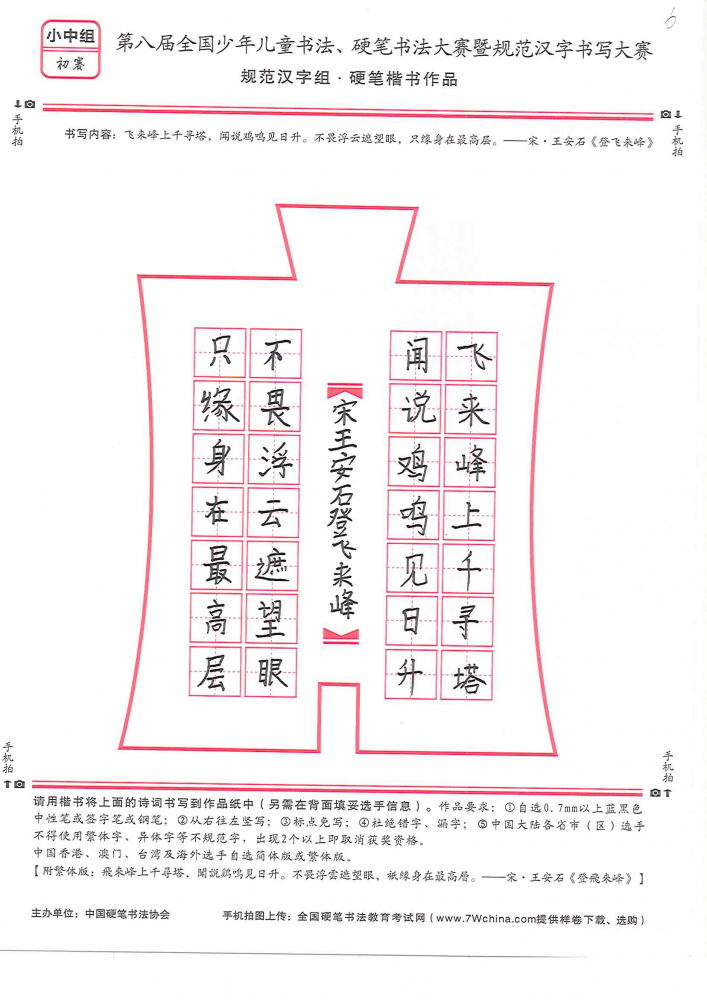 6
小中组
初赛
第八届全国少年儿童书法、硬笔书法大赛暨规范汉字书写大赛
规范汉字组·硬笔楷书作品
手机拍
手机拍
书写内容：飞来峰上千寻塔，闻说鸡鸣见日升。不畏浮云遮望眼，只缘身在最高层。——宋·王安石《登飞来峰》
飞来峰上千寻塔
闻说鸡鸣见日升
宋王安石登飞来峰
不畏浮云遮望眼
只缘身在最高层
手机拍
手机拍
请用楷书将上面的诗词书写到作品纸中（另需在背面填妥选手信息）。作品要求：①自选0.7mm以上蓝黑色
中性笔或签字笔或钢笔；②从右往左竖写；③标点免写；④杜绝错字、漏字；⑤中国大陆各省市（区）选手
不得使用繁体字、异体字等不规范字，出现2个以上即取消获奖资格。
中国香港、澳门、台湾及海外选手自选简体版或繁体版。
【附繁体版：飛來峰上千尋塔，聞說鷄鳴見日升。不畏浮雲遮望眼，衹緣身在最高層。——宋·王安石《登飛來峰》】
主办单位：中国硬笔书法协会
手机拍图上传：全国硬笔书法教育考试网（www.7Wchina.com提供样卷下载、选购）